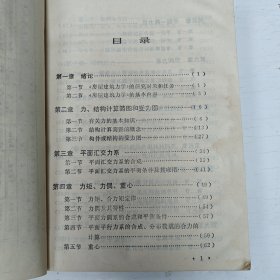 目录
第一章 绪论 (1)
第一节 《房屋建筑力学》的研究对象和任务 (1)
第二节 《房屋建筑力学》的基本内容
第二章 力、结构计算简图和受力图
第一节 有关力的基本知识
第二节 结构计算简图的概念
第三节 构件或结构的受力图
第三章 平面汇交力系
第一节 平面汇交力系的合成
第二节 平面汇交力系的平衡条件及其应用 (41)
第四章 力矩、力偶、重心 (49)
第一节 力矩、合力矩定理
第二节 力偶及其特性 (54)
第三节 平面力偶系的合成和平衡条件 (57)
第四节 平面平行力系的合成、分布荷载的合力的
计算 (59)
第五节 重心 (62)
1